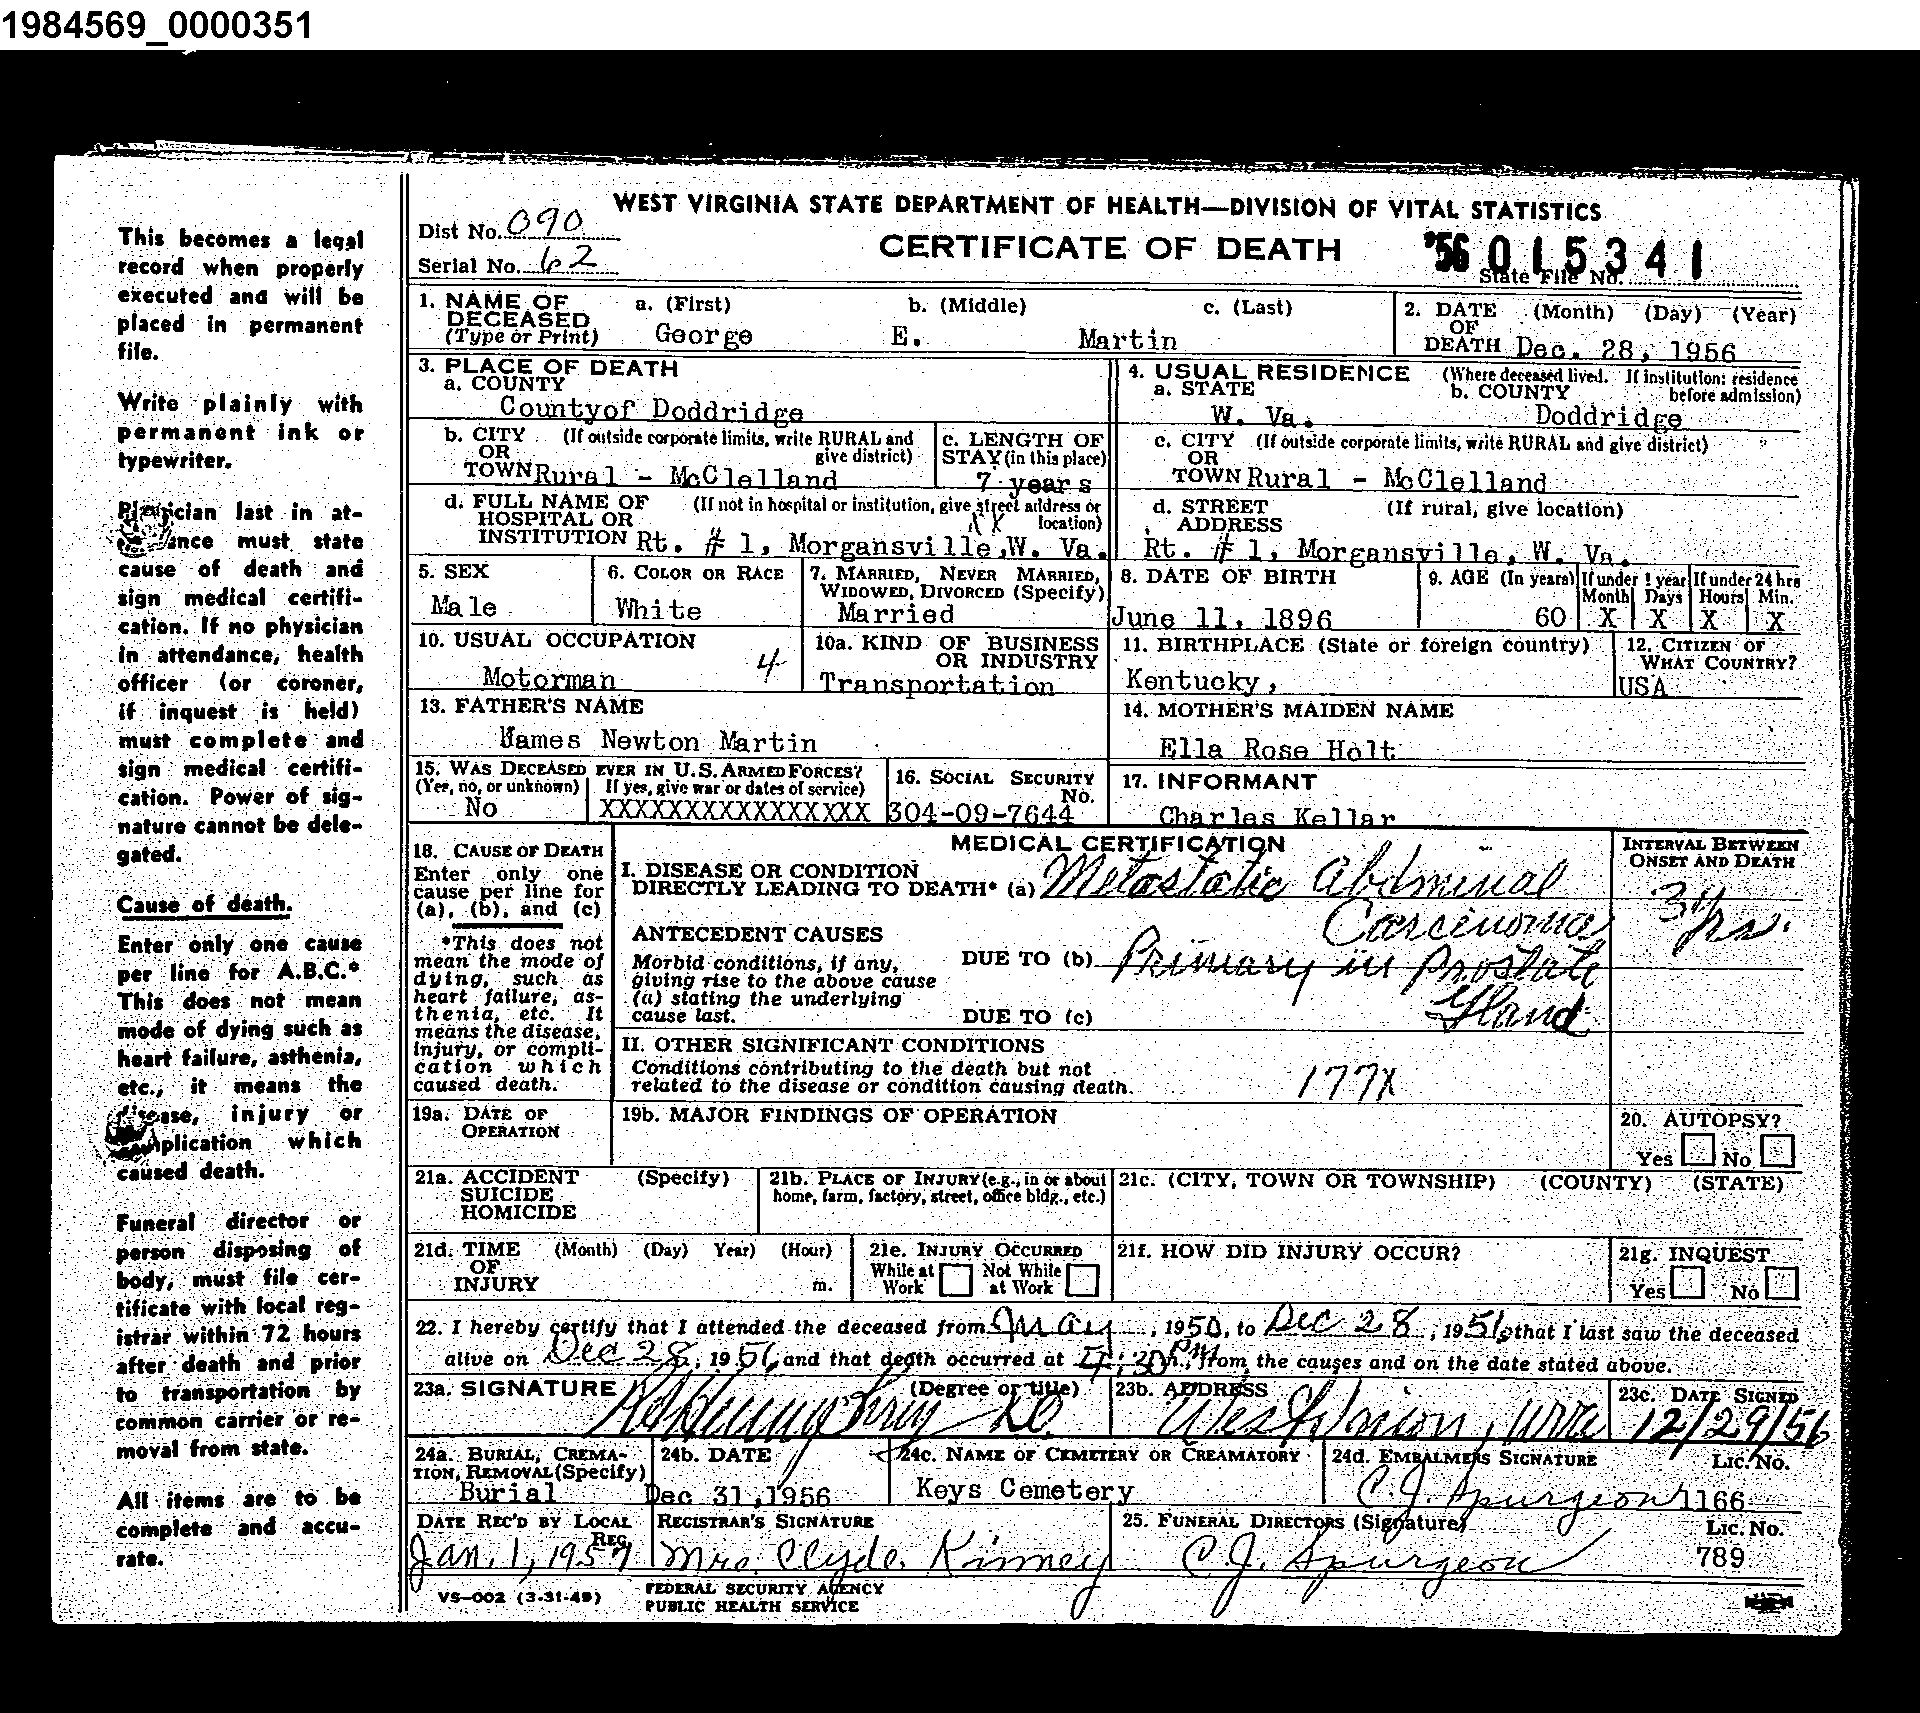 1984569_0000351
This becomes a legal
record when properly
executed and will be
placed in permanent
file.
Write plainly with
permanent ink or
typewriter.
Physician last in at-
ance must state
cause of death and
sign medical certifi-
cation. If no physician
in attendance, health
officer (or coroner,
if inquest is held)
must complete and
sign medical certifi-
cation. Power of sig-
nature cannot be dele-
gated.
Cause of death.
Enter only one cause
per line for A.B.C.*
This does not mean
mode of dying such as
heart failure, asthenia,
etc., it means the
disease, injury or
plication which
caused death.
Funeral director or
person disposing of
body, must file cer-
tificate with local reg-
istrar within 72 hours
after death and prior
to transportation by
common carrier or re-
moval from state.
All items are to be
complete and accu-
rate.
WEST VIRGINIA STATE DEPARTMENT OF HEALTH—DIVISION OF VITAL STATISTICS
Dist No. 090
CERTIFICATE OF DEATH
'56 015341
Serial No. 62
State File No.
1. NAME OF DECEASED (Type or Print) a. (First) b. (Middle) c. (Last)
George E. Martin
2. DATE OF DEATH (Month) (Day) (Year)
Dec. 28, 1956
3. PLACE OF DEATH
a. COUNTY
Countyof Doddridge
4. USUAL RESIDENCE (Where deceased lived. If institution: residence before admission)
a. STATE b. COUNTY
W. Va. Doddridge
b. CITY OR TOWN (If outside corporate limits, write RURAL and give district)
Rural - McClelland
c. LENGTH OF STAY (in this place)
7 years
c. CITY OR TOWN (If outside corporate limits, write RURAL and give district)
Rural - McClelland
d. FULL NAME OF HOSPITAL OR INSTITUTION (If not in hospital or institution, give street address or location)
Rt. # 1, Morgansville, W. Va.
d. STREET ADDRESS (If rural, give location)
Rt. # 1, Morgansville, W. Va.
5. SEX
Male
6. COLOR OR RACE
White
7. MARRIED, NEVER MARRIED, WIDOWED, DIVORCED (Specify)
Married
8. DATE OF BIRTH
June 11, 1896
9. AGE (In years)
60
If under 1 year If under 24 hrs
Month Days Hours Min.
X X X X
10. USUAL OCCUPATION
Motorman 4
10a. KIND OF BUSINESS OR INDUSTRY
Transportation
11. BIRTHPLACE (State or foreign country)
Kentucky,
12. CITIZEN OF WHAT COUNTRY?
USA
13. FATHER'S NAME
James Newton Martin
14. MOTHER'S MAIDEN NAME
Ella Rose Holt
15. WAS DECEASED EVER IN U.S. ARMED FORCES?
(Yes, no, or unknown) If yes, give war or dates of service)
No XXXXXXXXXXXXXXXX
16. SOCIAL SECURITY No.
304-09-7644
17. INFORMANT
Charles Kellar
18. CAUSE OF DEATH
Enter only one
cause per line for
(a), (b), and (c)
*This does not
mean the mode of
dying, such as
heart failure, as-
thenia, etc. It
means the disease,
injury, or compli-
cation which
caused death.
MEDICAL CERTIFICATION
I. DISEASE OR CONDITION
DIRECTLY LEADING TO DEATH* (a) Metastatic Abdminal
Carcinoma
INTERVAL BETWEEN ONSET AND DEATH
3 yrs.
ANTECEDENT CAUSES
Morbid conditions, if any,
giving rise to the above cause
(a) stating the underlying
cause last.
DUE TO (b) Primary in Prostate
Gland
DUE TO (c)
II. OTHER SIGNIFICANT CONDITIONS
Conditions contributing to the death but not
related to the disease or condition causing death.
177X
19a. DATE OF OPERATION
19b. MAJOR FINDINGS OF OPERATION
20. AUTOPSY?
Yes No
21a. ACCIDENT SUICIDE HOMICIDE (Specify)
21b. PLACE OF INJURY (e.g., in or about home, farm, factory, street, office bldg., etc.)
21c. (CITY, TOWN OR TOWNSHIP) (COUNTY) (STATE)
21d. TIME OF INJURY (Month) (Day) Year) (Hour) m.
21e. INJURY OCCURRED
While at Work Not While at Work
21f. HOW DID INJURY OCCUR?
21g. INQUEST
Yes No
22. I hereby certify that I attended the deceased from May, 1950, to Dec 28, 1956, that I last saw the deceased
alive on Dec 28, 1956, and that death occurred at 4:30 Pm., from the causes and on the date stated above.
23a. SIGNATURE (Degree or title)
23b. ADDRESS
West Union, W Va
23c. DATE SIGNED
12/29/56
24a. BURIAL, CREMA-
TION, REMOVAL (Specify)
Burial
24b. DATE
Dec 31, 1956
24c. NAME OF CEMETERY OR CREAMATORY
Keys Cemetery
24d. EMBALMERS SIGNATURE Lic. No.
C.J. Spurgeon 1166
DATE REC'D BY LOCAL REG.
Jan. 1, 1957
REGISTRAR'S SIGNATURE
Mrs. Clyde Kinney
25. FUNERAL DIRECTORS (Signature) Lic. No.
C.J. Spurgeon 789
VS-002 (3-31-49)
FEDERAL SECURITY AGENCY
PUBLIC HEALTH SERVICE